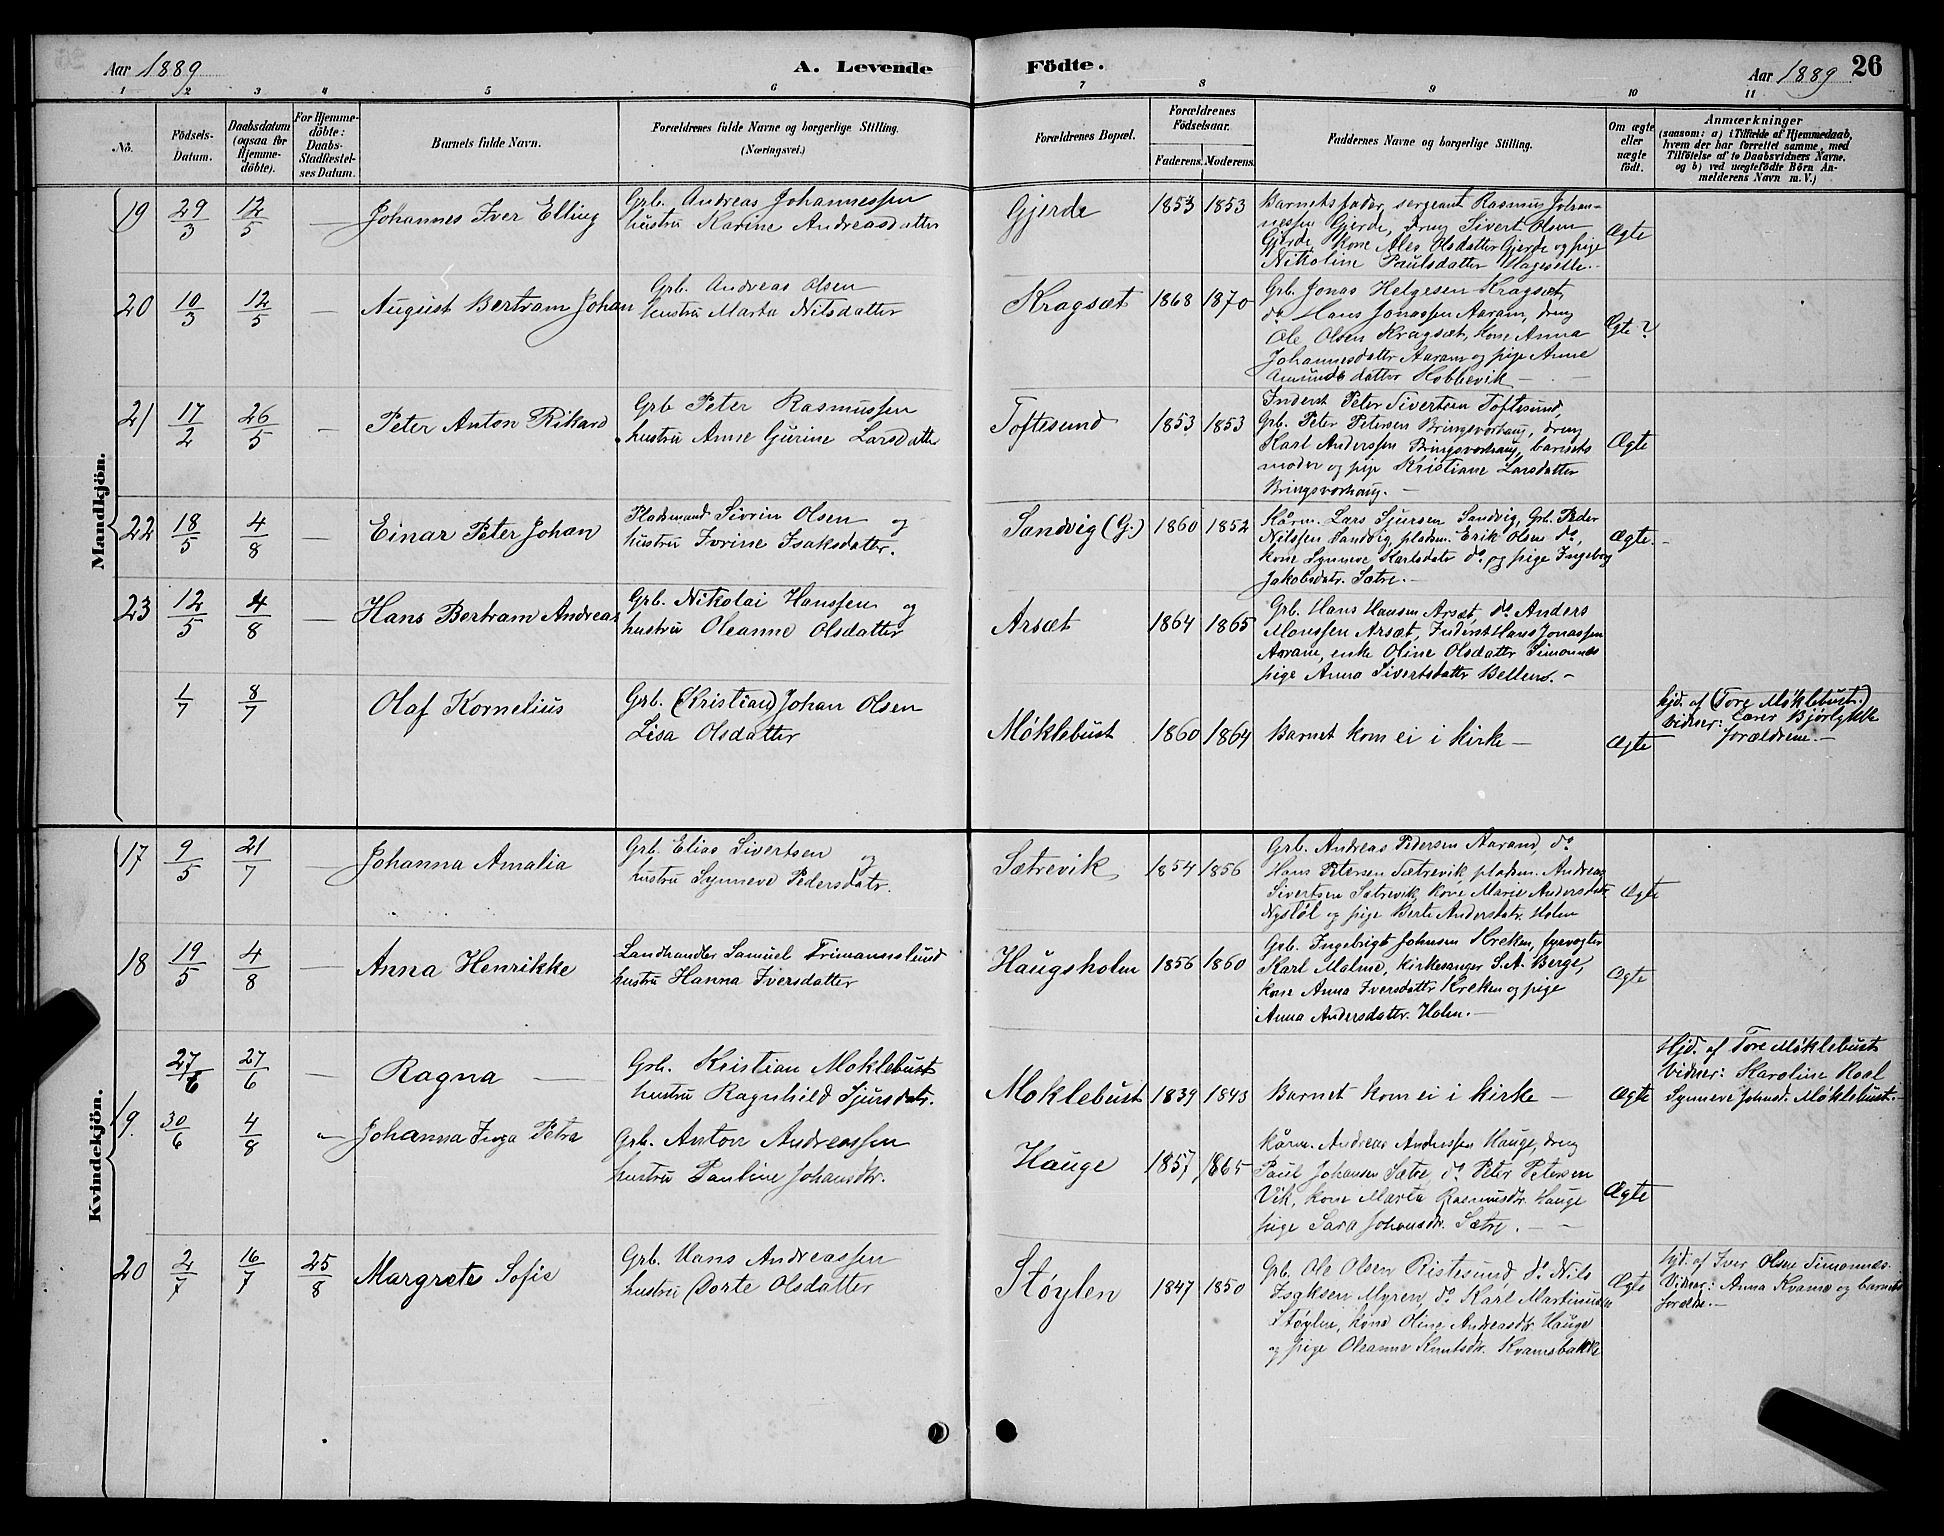 Aar 1889
A. Levende
Födte.
Aar 1889
26
1 2 3 4 5 6 7 8 9 10 11
No.
Födsels-
Datum.
Daabsdatum
(ogsaa for
Hjemme-
döbte).
For Hjemme-
döbte:
Daabs-
Stadfæstel-
ses Datum.
Barnets fulde Navn.
Forældrenes fulde Navne og borgerlige Stilling.
(Næringsvei.)
Forældrenes Bopæl.
Forældrenes
Födselsaar.
Faderens. Moderens.
Faddernes Navne og borgerlige Stilling.
Om ægte
eller
uægte
födt.
Anmærkninger
(saasom: a) i Tilfælde af Hjemmedaab,
hvem der har forrettet samme, med
Tilföielse af to Daabsvidners Navne,
og b) ved uægtefödte Börn An-
melderens Navn m. V.)
Mandkjön.
19 29/3 12/5 — Johannes Iver Elling
Grb. Andreas Johannessen
hustru Karine Andreasdatter
Gjerde 1853 1853
Barnets fader, sergeant Rasmus Johan-
nessen Gjerde, dreng Sivert Olsen
Gjerde, kone Ales Olsdatter Gjerde og pige
Nikoline Paulsdatter
Ægte
20 10/3 12/5 — August Bertram Johan
Grb. Andreas Olsen
hustru Marta Nilsdatter
Kragsæt 1868 1870
Grb. Jonas Helgesen Kragsæt,
do Hans Jonassen Aaram, dreng
Ole Olsen Kragsæt, kone Anna
Johannesdatter Aaram og pige Anne
Amunds datter Hobbevik —
Ægte?
21 17/2 26/5 — Peter Anton Rikard
Grb Peter Rasmussen
hustru Anne Gurine Larsdatter
Toftesund 1853 1853
Inderst Peter Sivertsen Toftesund,
Grb. Peter Petersen Bringsvorhaug, dreng
Karl Anderssen Bringsvorhaug, barnets
moder og pige Kristiane Larsdatter
Bringsvorhaug. —
Ægte
22 18/5 4/8 — Einar Peter Johan
Pladsmand Sivrin Olsen og
hustru Ivrine Isaksdatter.
Sandvig (G.) 1860 1852
Kårm. Lars Sjursen Sandvig, Grb. Peder
Nilssen Sandvig, pladsm. Erik Olsen do,
kone Synneve Karlsdatr do, og pige Ingeborg
Jakobsdatr. Sætre. —
Ægte. —
23 12/5 4/8 — Hans Bertram Andreas
Grb. Nikolai Hanssen og
hustru Oleanne Olsdatter
Arsæt 1864 1865
Grb. Hans Hansen Arsæt, do Anders
Monssen Arsæt, Inderst Hans Jonassen
Aaram, enke Oline Olsdatter Simonnes
pige Anna Sivertsdatter. —
1/7 8/7 Olaf Kornelius
Grb. (Kristian) Johan Olsen
Lisa Olsdatter
Møklebust 1860 1864
Barnet kom ei i kirke —
Ægte
hjd. af (Tore Møklebust.)
Vidner: Bjørlykke
forældrene. —
Kvindekjön.
17 9/5 21/7 — Johanna Amalia
Grb. Elias Sivertsen og
hustru Synneve Pedersdatr.
Sætrevik 1854 1856
Grb. Andreas Pedersen Aarand, do
Hans Petersen Sætrevik, pladsm. Andreas
Sivertsen Sætrevik, kone Marie Andersdatr
Nystöl og pige Berte Andersdatr. Holen
Ægte
18 19/5 4/8 — Anna Henrikke
Landhandler Samuel Frimannslund
hustru Hanna Iversdatter
Haugsholm 1856 1860
Grb. Ingebrigt Johnsen Kreken, fyrvogter
Karl Malme, kirkesanger S. A. Berge,
kone Anna Iversdatter Kreken og pige
Anna Andersdatter. Holen. —
Ægte
27/6 27/6 — Ragna —
Grb. Kristian Moklebust
hustru Ragnhild Sjursdatr.
Moklebust 1839 1843
Barnet kom ei i kirke —
Ægte
Hjd. af Tore Møklebust
Vidner: Karoline
Synneve Johnsd. Møklebust.
19. 30/6 4/8 — Johanna Inga Petra
Grb. Anton Andreassen
hustru Pauline Johansdtr.
Hauge 1857 1865
Kårm. Andreas Anderssen Hauge, dreng
Paul Johansen Sætre, do Peter Petersen
Vik, kone Marta Rasmusdtr. Hauge
pige Sara Johansdtr. Sætre. — —
Ægte
20 2/7 16/7 25/8 Margrete Sofie
Grb. Hans Andreassen
hustru Dorte Olsdatter
Støylen 1847 1850
Grb. Ole Olsen Ristesund, do Nils
Isaksen Myren, do Karl Martinussen
Støylen, kone Oline Andreasdtr. Hauge
og pige Oleanne Knutsdtr. Kvamsbakke
Ægte
hjd. af Iver Olsen Simonnæs.
Vidner: Anna Kvamme og barnets
forældre. —